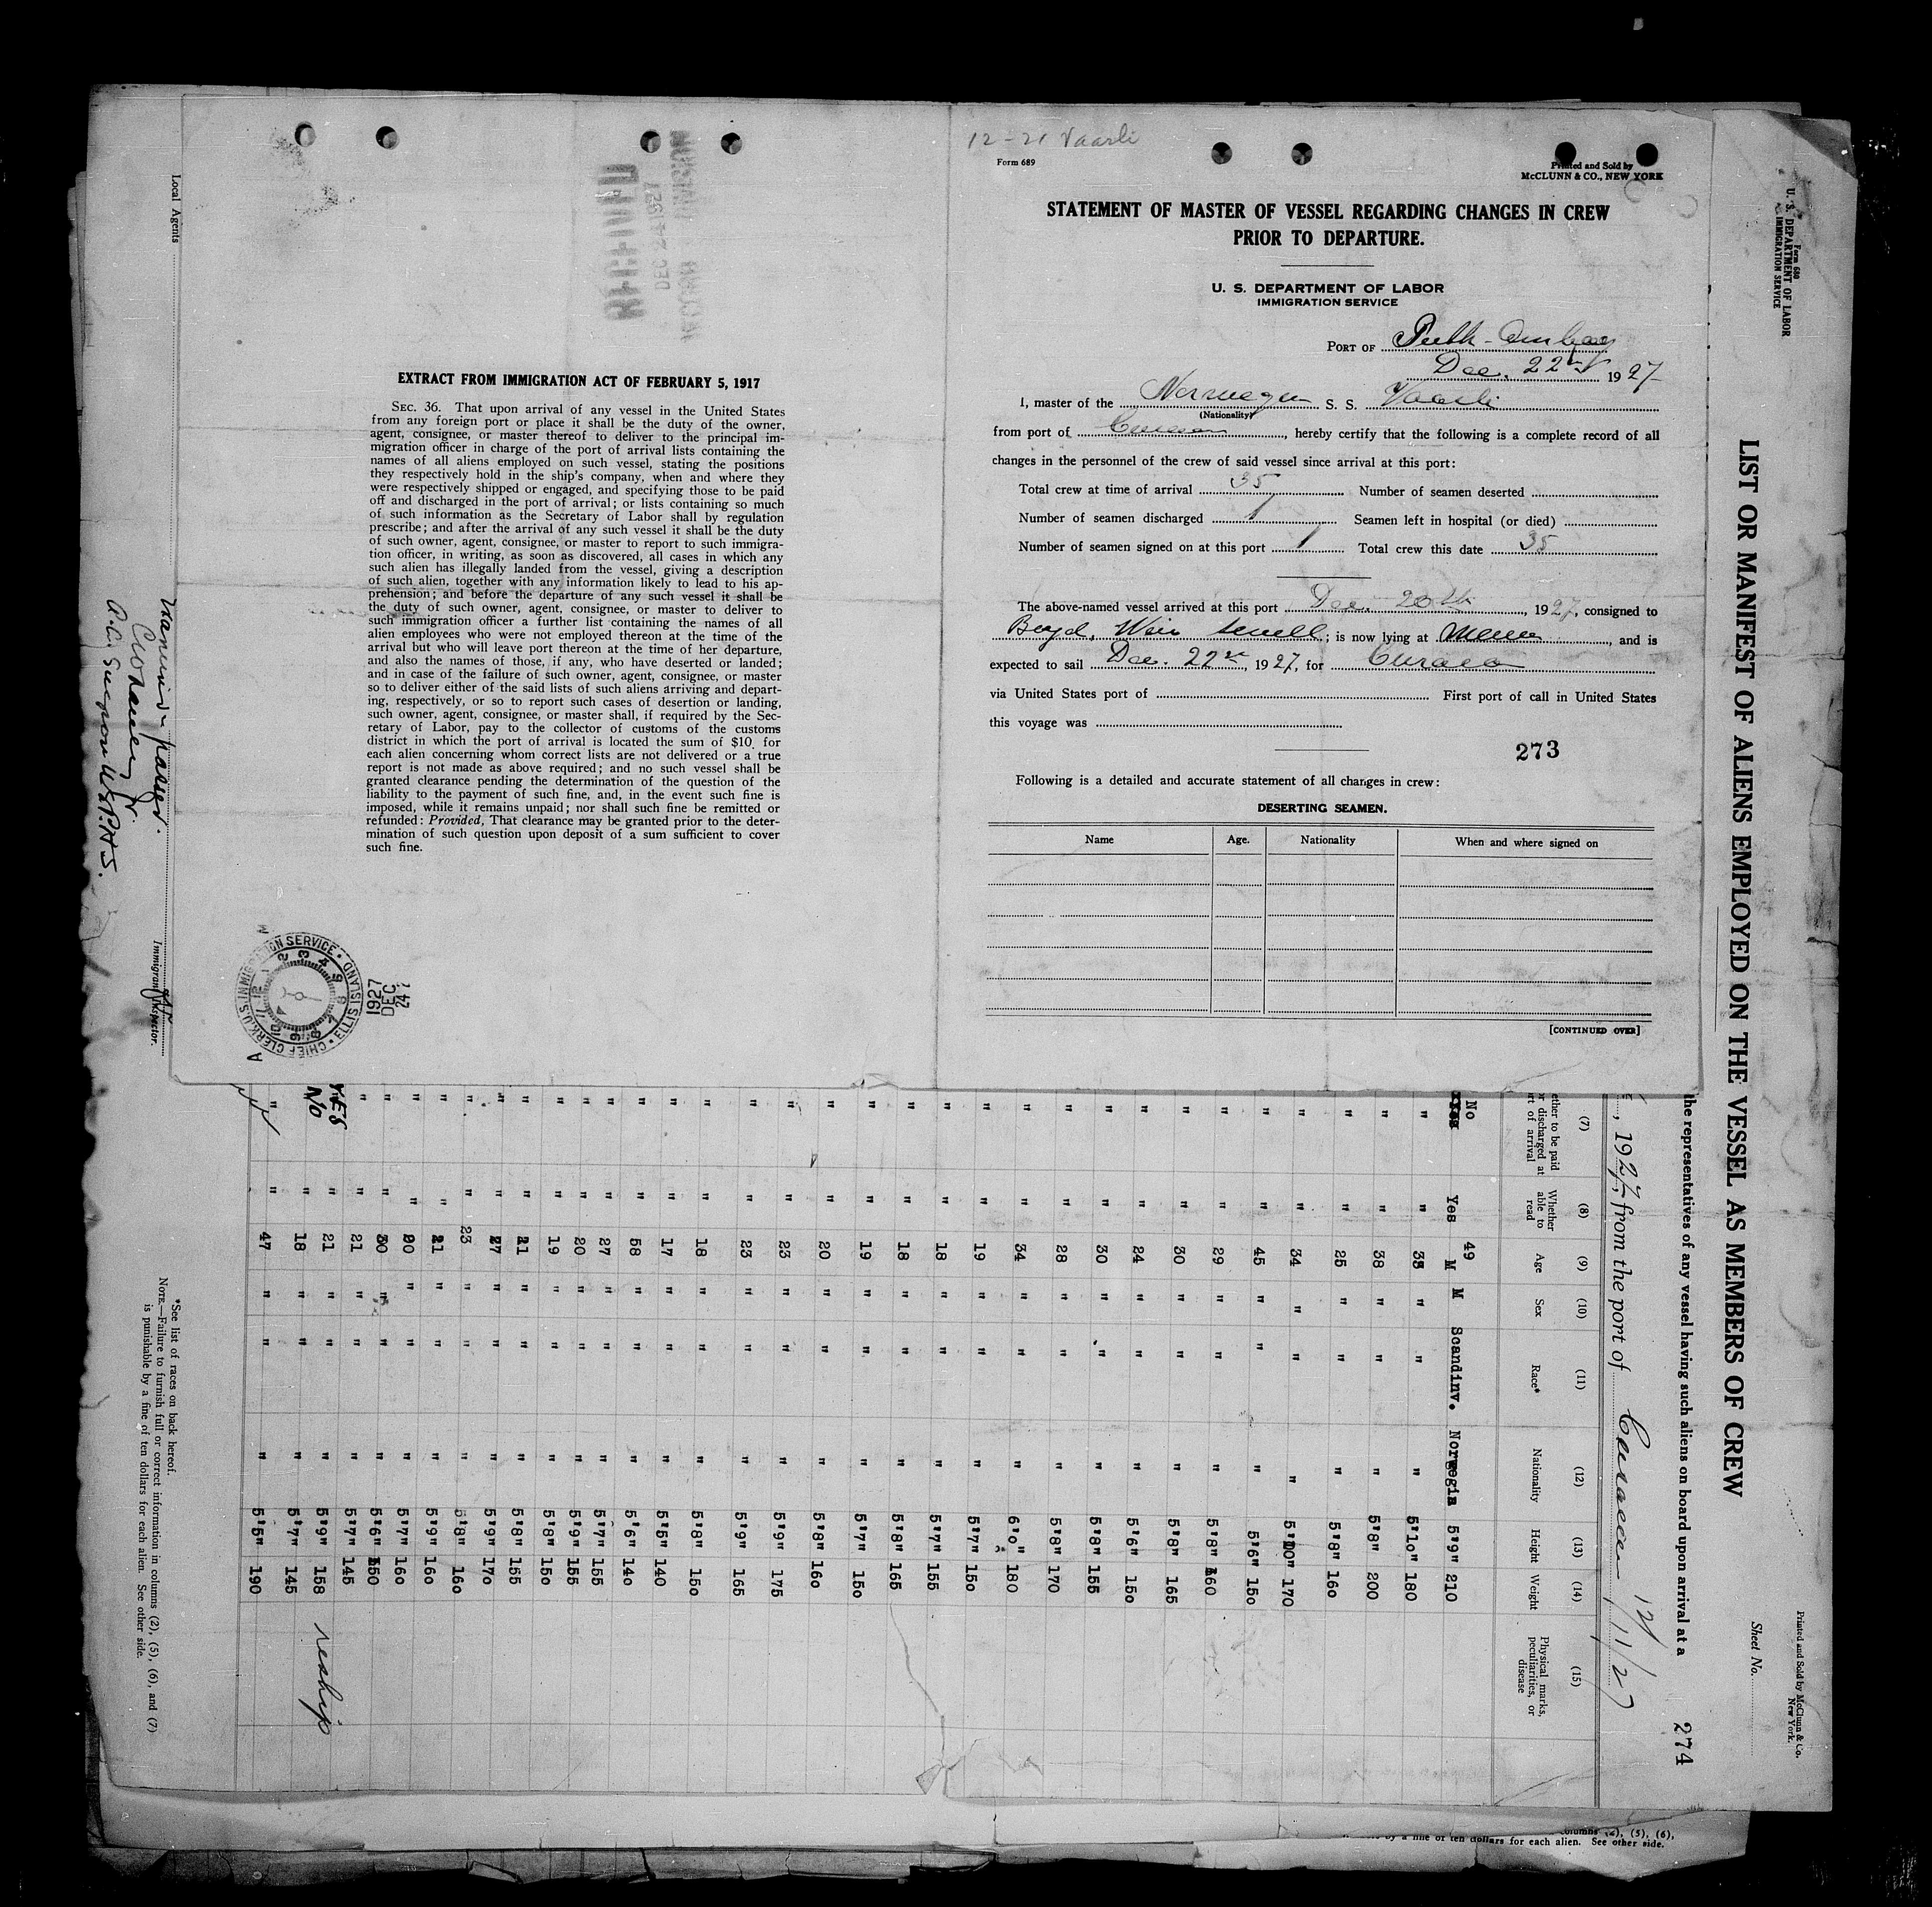 12-21 Vaarli
Form 689
Printed and Sold by
McCLUNN & CO., NEW YORK
STATEMENT OF MASTER OF VESSEL REGARDING CHANGES IN CREW
PRIOR TO DEPARTURE.
U. S. DEPARTMENT OF LABOR
IMMIGRATION SERVICE
PORT OF Perth-Amboy
Dec. 22nd 1927
I, master of the Norwegen S. S. Vaarli
(Nationality)
from port of Curacao, hereby certify that the following is a complete record of all
changes in the personnel of the crew of said vessel since arrival at this port:
Total crew at time of arrival 35 Number of seamen deserted
Number of seamen discharged 1 Seamen left in hospital (or died)
Number of seamen signed on at this port 1 Total crew this date 35
The above-named vessel arrived at this port Dec. 20th, 1927, consigned to
Boyd, Weir Sewell; is now lying at, and is
expected to sail Dec. 22nd, 1927, for Curacao
via United States port of First port of call in United States
this voyage was
273
Following is a detailed and accurate statement of all changes in crew:
DESERTING SEAMEN.
Name Age. Nationality When and where signed on
[CONTINUED OVER]
RECEIVED
DEC 24 1927
RECORD DIVISION
EXTRACT FROM IMMIGRATION ACT OF FEBRUARY 5, 1917
SEC. 36. That upon arrival of any vessel in the United States
from any foreign port or place it shall be the duty of the owner,
agent, consignee, or master thereof to deliver to the principal im-
migration officer in charge of the port of arrival lists containing the
names of all aliens employed on such vessel, stating the positions
they respectively hold in the ship's company, when and where they
were respectively shipped or engaged, and specifying those to be paid
off and discharged in the port of arrival; or lists containing so much
of such information as the Secretary of Labor shall by regulation
prescribe; and after the arrival of any such vessel it shall be the duty
of such owner, agent, consignee, or master to report to such immigra-
tion officer, in writing, as soon as discovered, all cases in which any
such alien has illegally landed from the vessel, giving a description
of such alien, together with any information likely to lead to his ap-
prehension; and before the departure of any such vessel it shall be
the duty of such owner, agent, consignee, or master to deliver to
such immigration officer a further list containing the names of all
alien employees who were not employed thereon at the time of the
arrival but who will leave port thereon at the time of her departure,
and also the names of those, if any, who have deserted or landed;
and in case of the failure of such owner, agent, consignee, or master
so to deliver either of the said lists of such aliens arriving and depart-
ing, respectively, or so to report such cases of desertion or landing,
such owner, agent, consignee, or master shall, if required by the Sec-
retary of Labor, pay to the collector of customs of the customs
district in which the port of arrival is located the sum of $10 for
each alien concerning whom correct lists are not delivered or a true
report is not made as above required; and no such vessel shall be
granted clearance pending the determination of the question of the
liability to the payment of such fine, and, in the event such fine is
imposed, while it remains unpaid; nor shall such fine be remitted or
refunded: Provided, That clearance may be granted prior to the deter-
mination of such question upon deposit of a sum sufficient to cover
such fine.
CHIEF CLERK, U.S. IMMIGRATION SERVICE • ELLIS ISLAND
1927
DEC
24
Form 680
U. S. DEPARTMENT OF LABOR
IMMIGRATION SERVICE
Printed and Sold by McClunn & Co.
New York.
Sheet No.
LIST OR MANIFEST OF ALIENS EMPLOYED ON THE VESSEL AS MEMBERS OF CREW
274
the representatives of any vessel having such aliens on board upon arrival at a
, 1927, from the port of Curacao 12/11/27
(7) (8) (9) (10) (11) (12) (13) (14) (15)
ether to be paid
or discharged at
rt of arrival
Whether
able to
read
Age Sex Race* Nationality Height Weight
Physical marks,
peculiarities, or
disease
No Yes 49 M M Scandinv. Norwegin 5'9" 210
" " 38 " " " 5'10" 180
" " 38 " " " 5'8" 200
" " 25 " " " 5'8" 160
" " 34 " " " 5'10" 170
" " 45 " " " 5'6" 150
" " 29 " " " 5'8" 160
" " 30 " " " 5'8" 165
" " 24 " " " 5'6" 150
" " 30 " " " 5'8" 155
" " 28 " " " 5'8" 170
" " 34 " " " 6'0" 180
" " 19 " " " 5'7" 150
" " 18 " " " 5'7" 155
" " 18 " " " 5'8" 165
" " 19 " " " 5'7" 150
" " 20 " " " 5'8" 160
" " 23 " " " 5'9" 175
" " 23 " " " 5'9" 165
" " 18 " " " 5'8" 150
" " 17 " " " 5'5" 140
" " 58 " " " 5'6" 140
" " 27 " " " 5'7" 155
" " 20 " " " 5'9" 155
" " 19 " " " 5'8" 150
" " 21 " " " 5'8" 155
" " 27 " " " 5'9" 170
" " 23 " " " 5'8" 160
" " 21 " " " 5'9" 160
" " 20 " " " 5'7" 160
" " 30 " " " 5'6" 150
" " 21 " " " 5'7" 145
YES " 21 " " " 5'9" 158 reship
No " 18 " " " 5'7" 145
" " 47 " " " 5'5" 190
*See list of races on back hereof.
NOTE.—Failure to furnish full or correct information in columns (2), (5), (6), and (7)
is punishable by a fine of ten dollars for each alien. See other side.
Local Agents
Immigrant Inspector.
passed.
A.A. Surgeon U.S.P.H.S.
columns (2), (5), (6),
by a fine of ten dollars for each alien. See other side.